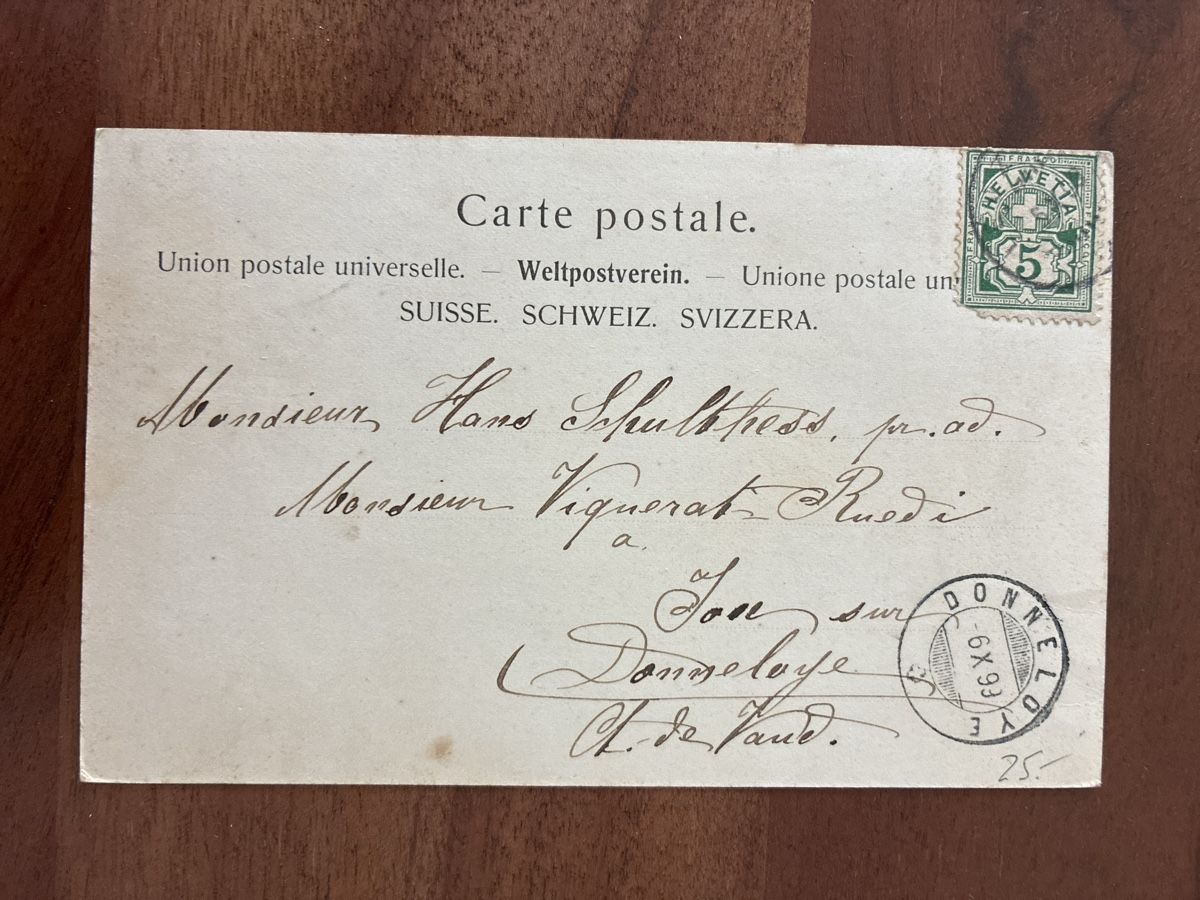 Carte postale.
Union postale universelle. — Weltpostverein. — Unione postale un
SUISSE. SCHWEIZ. SVIZZERA.
FRANCO
HELVETIA
5
Monsieur Hans Schulthess, pr. ad.
Monsieur Viquerat-Ruedi
a
sur
Donneloye
Ct. de Vaud.
DONNELOYE
25.-